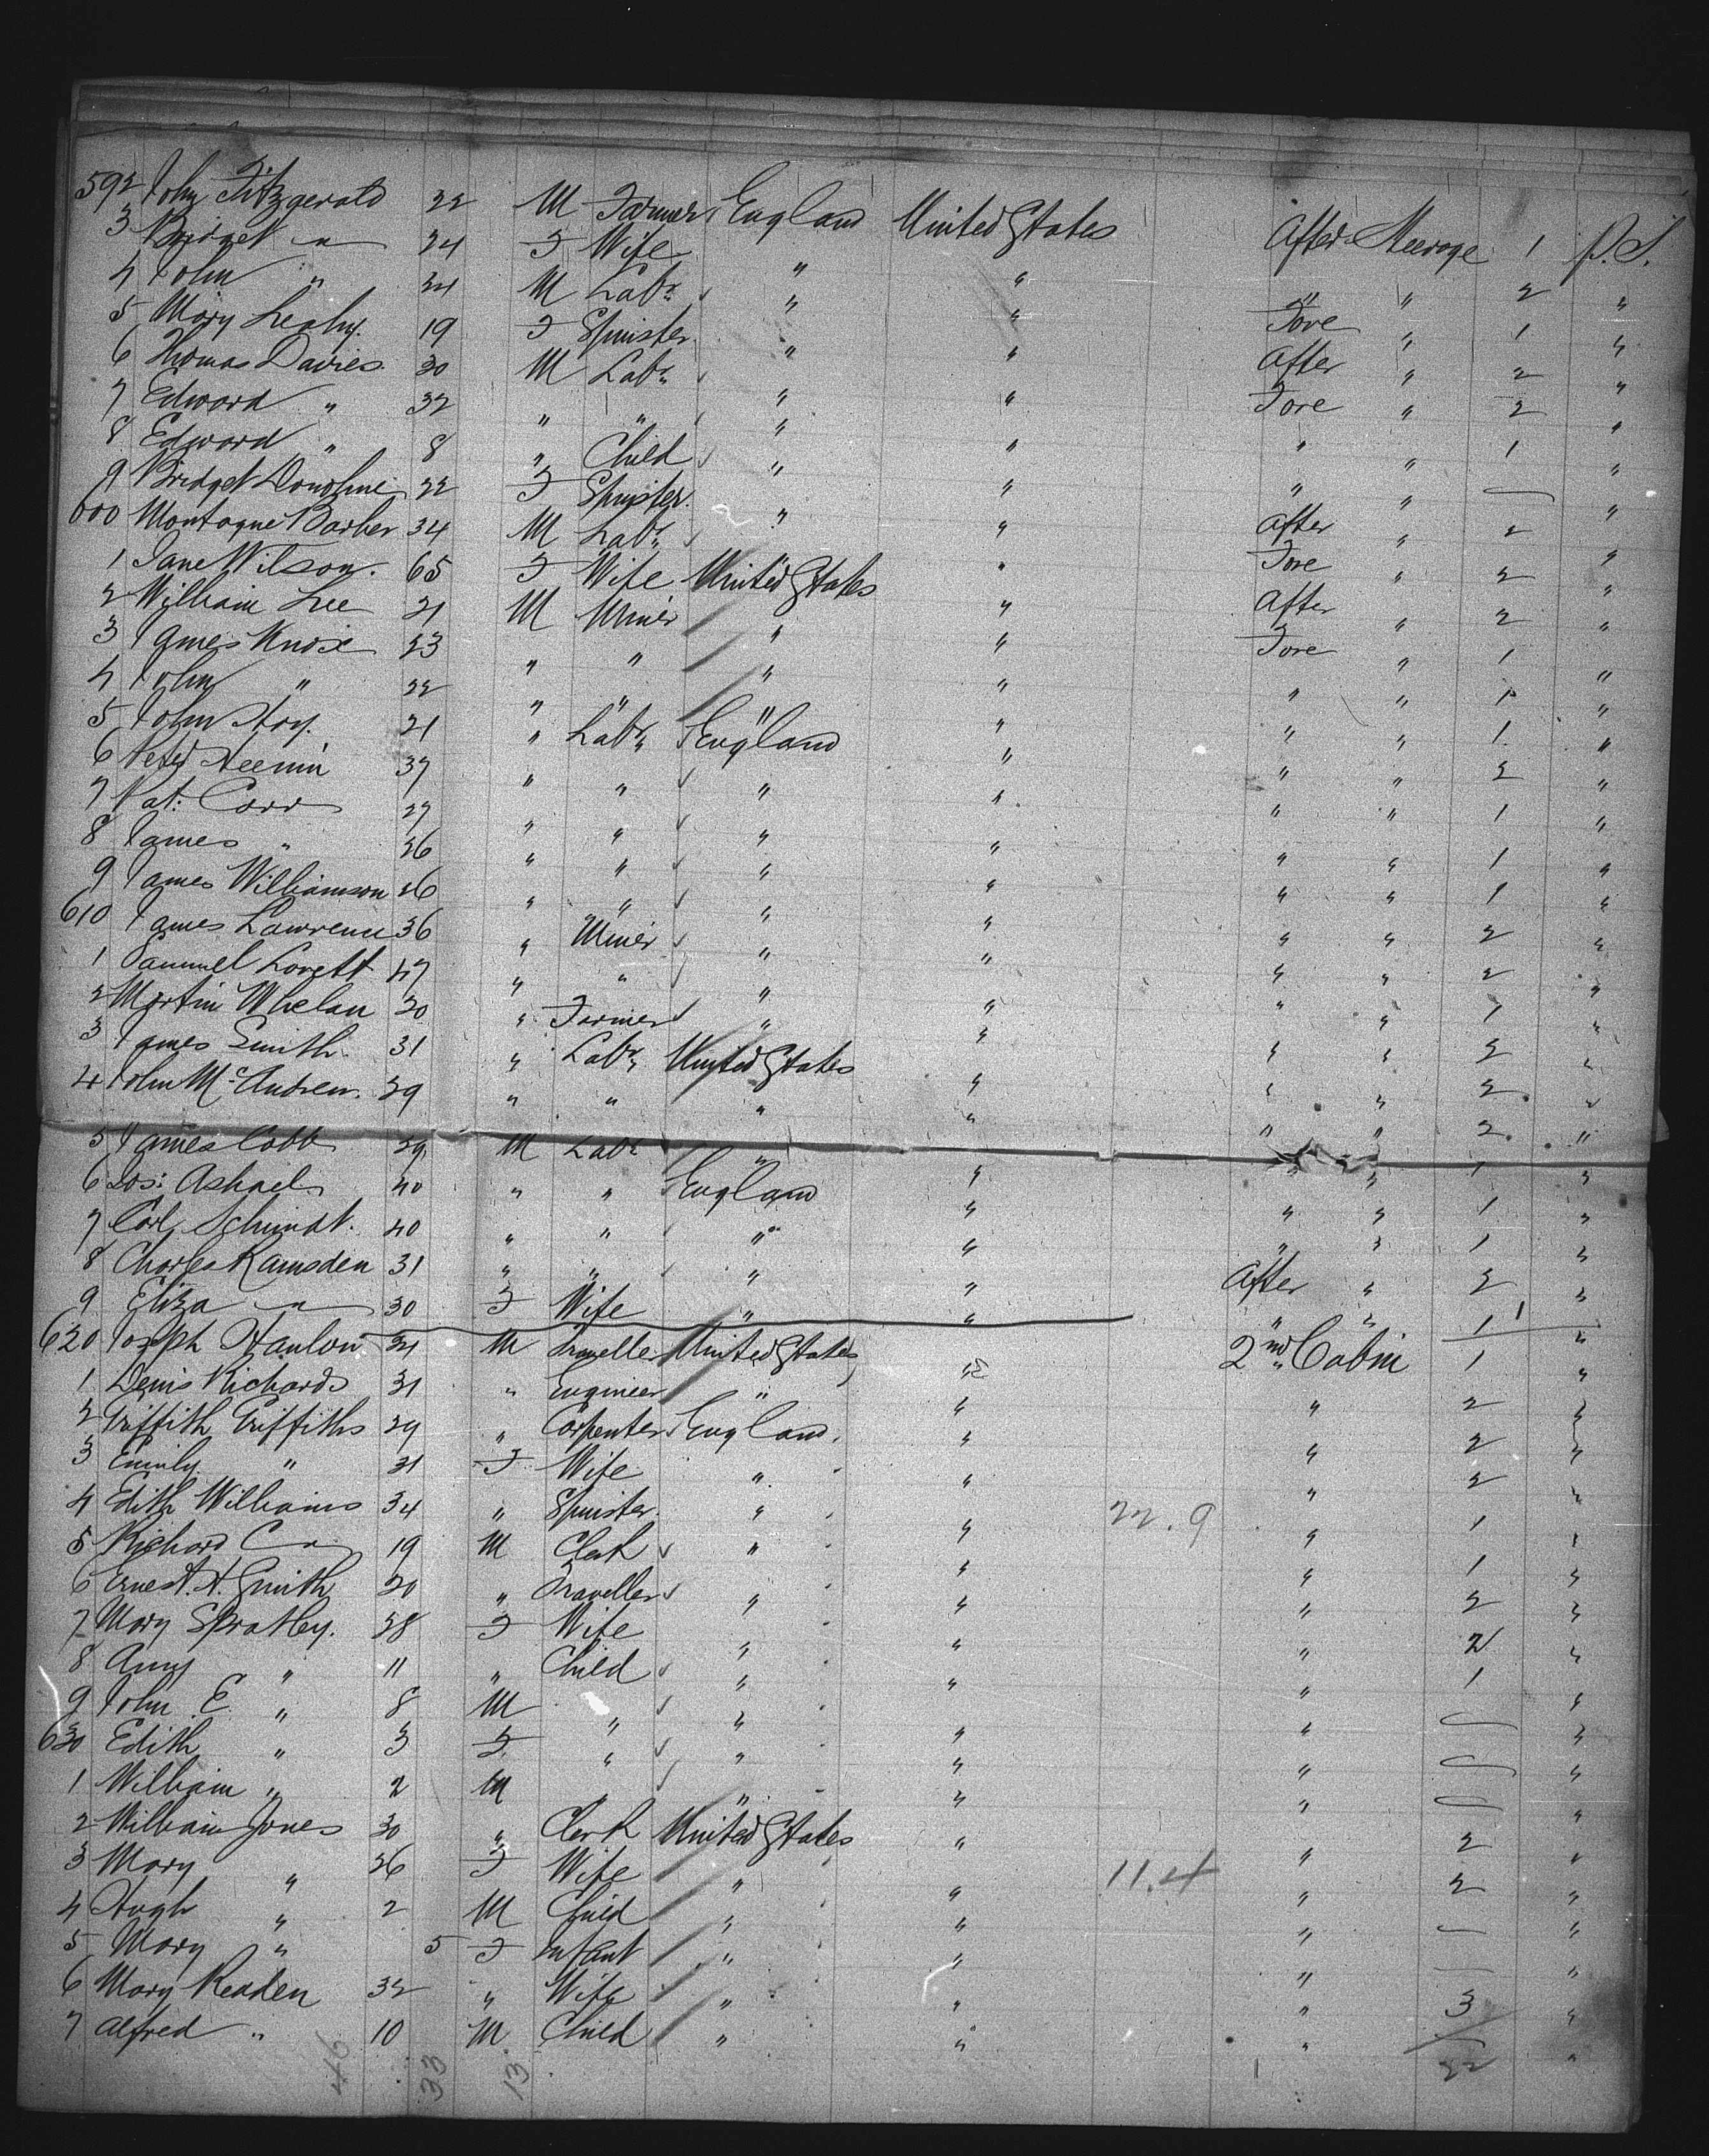 592 John Fitzgerald 22 M Farmer England United States After Steerage 1 P.S.
3 Bridget " 24 F Wife " " " " 2 "
4 John " 24 M Labr " " Fore " 1 "
5 Mary Leahy 19 F Spinster " " After " 2 "
6 Thomas Davies 30 M Labr " " Fore " 2 "
7 Edward " 32 " " " " " " 1 "
8 Edward " 8 " Child " " " " — "
9 Bridget Donohue 22 F Spinster " " After " 2 "
600 Montague Barber 34 M Labr " " Fore " 2 "
1 Jane Wilson 65 F Wife United States " After " 2 "
2 William Lee 21 M Miner " " Fore " 1 "
3 James Knox 23 " " " " " " 1 "
4 John " 22 " " " " " " 1 "
5 John Hoy 21 " Labr England " " " 2 "
6 Peter 37 " " " " " " 1 "
7 Pat: Corr 27 " " " " " " 1 "
8 James " 26 " " " " " " 1 "
9 James Williamson 26 " " " " " " 2 "
610 James Lawrence 36 " Miner " " " " 2 "
1 Samuel Lovett 47 " " " " " " 1 "
2 Martin Whelan 20 " Farmer " " " " 2 "
3 James Smith 31 " Labr United States " " " 2 "
4 John McAndrew 29 " " " " " " 2 "
5 James Cobb 29 M Labr " " " " 1 "
6 Jos: Ashael 40 " " England " " " 1 "
7 Carl Schmidt 40 " " " " " " 1 "
8 Charles Ramsden 31 " " " " After " 2 "
9 Eliza " 30 F Wife " " " " 1 1 "
620 Joseph Hanlon 24 M Traveller United States " 2nd Cabin 1 "
1 Denis Richards 31 " Engineer " " " 2 "
2 Griffith Griffiths 29 " Carpenter England " " 2 "
3 Emily " 31 F Wife " " " 2 "
4 Edith Williams 34 " Spinster " " 22.9 " 1 "
5 Richard C " 19 M Clerk " " " 1 "
6 Ernest H. Smith 20 " Traveller " " " 2 "
7 Mary Spratley 38 F Wife " " " 2 "
8 Amy " 11 " Child " " " 1 "
9 John E " 8 M " " " " — "
630 Edith " 3 F " " " " — "
1 William " 2 M " " " " — "
2 William Jones 30 " Clerk United States " " 2 "
3 Mary " 26 F Wife " " 11.4 " 2 "
4 Hugh " 2 M Child " " " — "
5 Mary " 5 F Infant " " " — "
6 Mary Readen 32 " Wife " " " 3 "
7 Alfred " 10 M Child " " " "
46 33 13 32